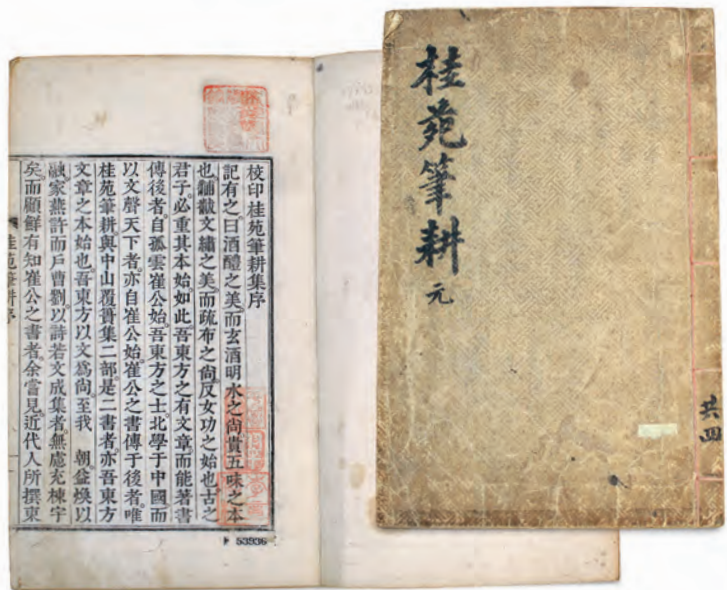 校印桂苑筆耕集序
記有之曰酒醴之美而玄酒明水之尚貴五味之本
也黼黻文繡之美而疏布之尚反女功之始也古之
君子必重其本始如此吾東方之有文章而能著書
傳後者自孤雲崔公始吾東方之士北學于中國而
以文聲天下者亦自崔公始崔公之書傳于後者唯
桂苑筆耕與中山覆簣集二部是二書者亦吾東方
文章之本始也吾東方以文爲尚至我 朝益煥以
融家燕許而戶曹劉以詩若文成集者無慮充棟宇
矣而顧鮮有知崔公之書者余嘗見近代人所撰東
桂苑筆耕序
53936
桂苑筆耕 元
共四